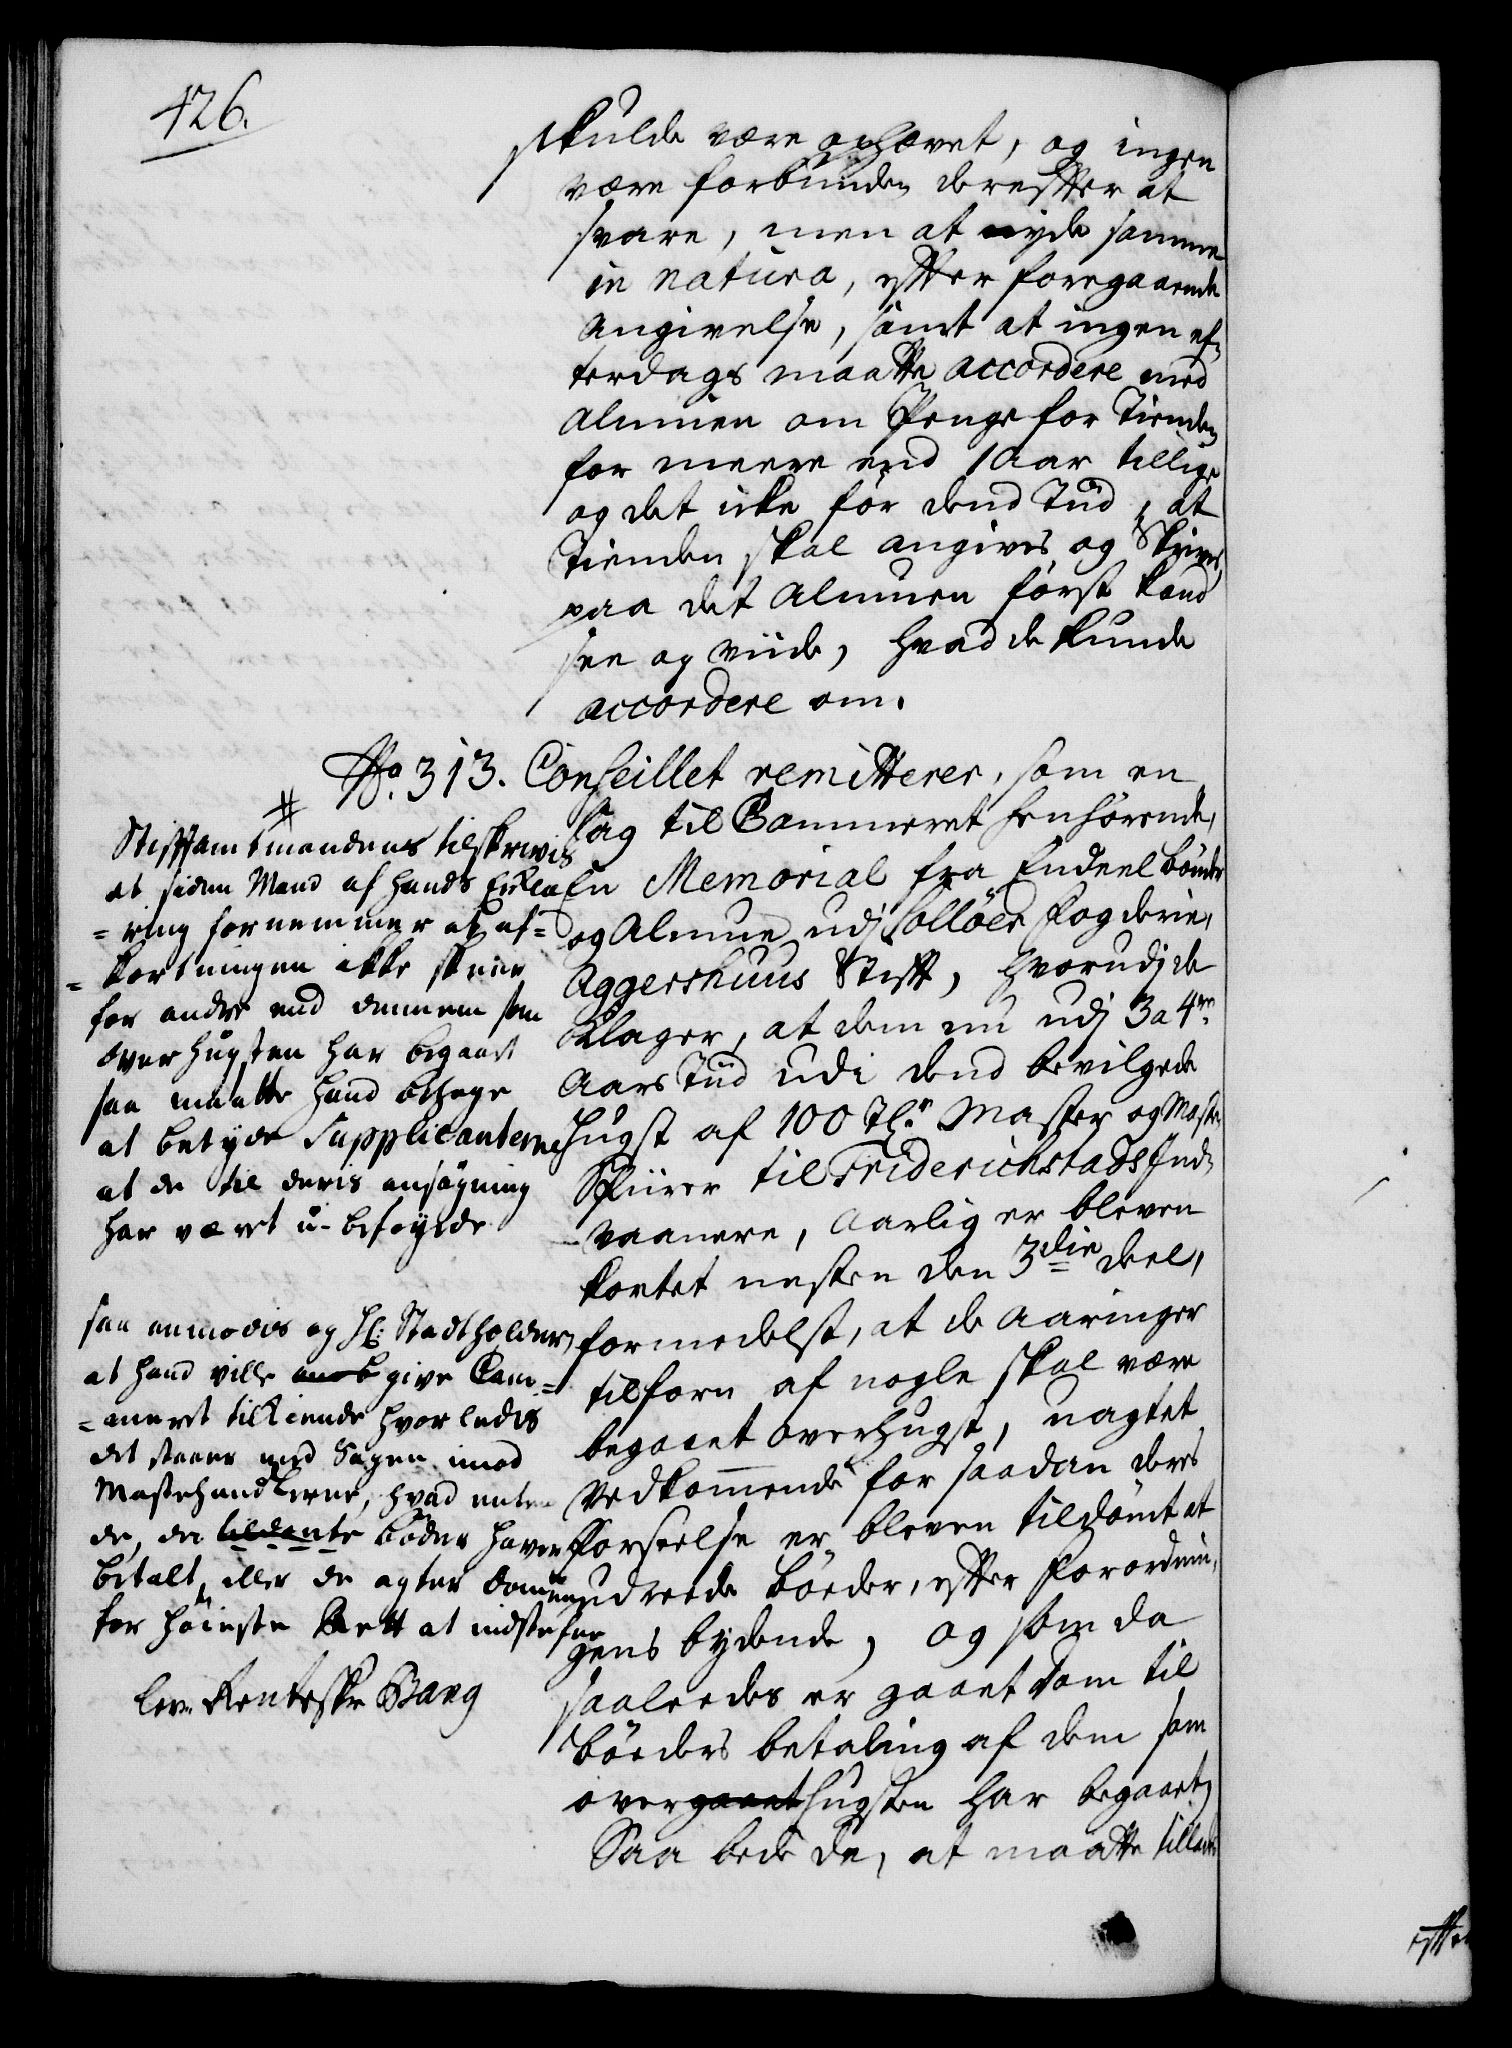 426.
skulde være ophævet, og ingen
være forbunden derefter at
svare, men at nyde samme
in natura, efter foregaaende
angivelse, samt at ingen ef-
terdags maatte accordere med
Almuen om Penge for Tienden
for meere end 1 Aar tillige
og det icke för dend Tiid, at
Tienden skal angives og Skrives,
paa det Almuen först kand
see og viide, hvad de kunde
accordere om.
No. 313. Conseillet remitterer, som en
Sag til Cammeret henhörende,
En Memorial fra Endeel bönder
og Almue udj Solløer Fogderie,
Aggershuus Stift, hvorudj de
Klager, at dem nu udj 3 a 4re
Aars Tiid udi dend bevilgede
Hugst af 100 Tl. Master og Maste
Spiirer til Friderichstads Ind-
vaanere, Aarlig er bleven
kortet nesten den 3die deel,
formedelst, at de Aaringer
tilforn af nogle skal være
begaaet Overhugst, uagtet
Vedkommende for saadan deres
Forseelse er bleven tildömt at
udreede böeder, efter Forordnin-
gens bydende, og som da
saaleedes er gaaet Dom til
böeders betaling af dem som
overgaaethugsten har begaaet,
Saa bede de, at maatte tillades
#
Stiftamtmandens tilskrivis
at siden Mand af hands Erklæ
=ring fornemmer at af=
=kortningen ikke skeer
for andre end dennem som
Overhugsten har begaaet
saa maatte hand behage
at betyde Supplicanterne
at de til deris ansøgning
har været u-beføyede
saa anmodis og H: Stadtholder,
at hand ville give Cam=
=meret tilkiende hvorledis
det staaer med Sagen imod
Mastehandlerne, hvad enten
de, de tildømte bøder haver
betalt, eller de agter Dommen
for Høieste Rett at indstefne
lev. Renteskr Bang